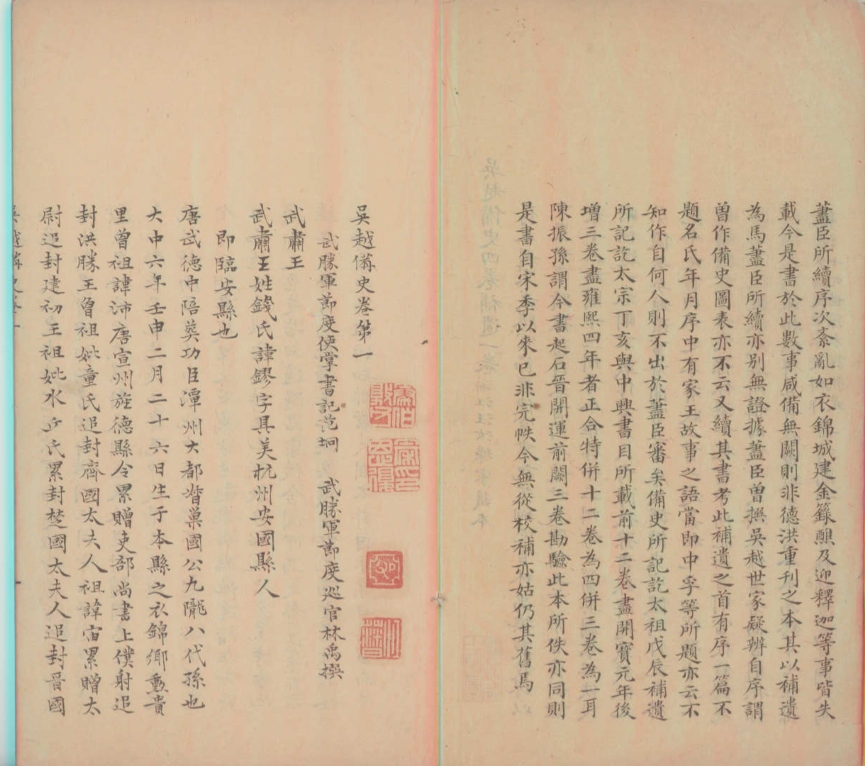 藎臣所續序次紊亂如衣錦城建金籙醮及迎釋迦等事皆失
載今是書於此數事咸備無闕則非德洪重刊之本其以補遺
為馬藎臣所續亦別無證據藎臣曾撰吳越世家疑辨自序謂
曽作備史圖表亦不云又續其書考此補遺之首有序一篇不
題名氏年月序中有家王故事之語當即中孚等所題亦云不
知作自何人則不出於藎臣審矣備史所記訖太祖戊辰補遺
所記訖太宗丁亥與中興書目所載前十二卷盡開寳元年後
增三卷盡雍熙四年者正合特併十二卷為四併三卷為一耳
陳振孫謂今書起石晉開運前闕三卷勘驗此本所佚亦同則
是書自宋季以來已非完帙今無從校補亦姑仍其舊焉
吳越備史卷第一
武勝軍節度使掌書記范坰 武勝軍節度巡官林禹撰
武肅王
武肅王姓錢氏諱鏐字具美杭州安國縣人
即臨安縣也
唐武德中陪葬功臣潭州大都督巢國公九隴八代孫也
大中六年壬申二月二十六日生于本縣之衣錦鄉勳貴
里曾祖諱沛唐宣州旌德縣令累贈吏部尚書上僕射追
封洪勝王曾祖妣童氏追封齊國太夫人祖諱宙累贈太
尉追封建初王祖妣水丘氏累封楚國太夫人追封晉國